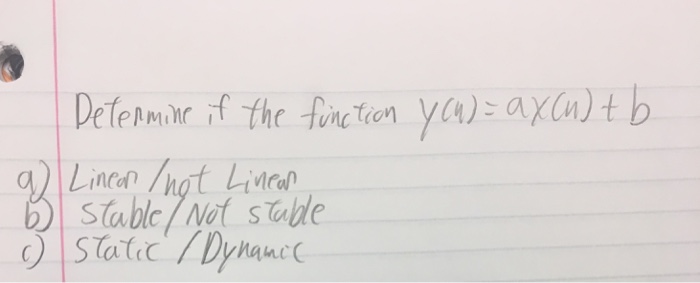 Determine if the function y(n) = ax(n) + b
a) Linear / not Linear
b) stable / Not stable
c) static / Dynamic